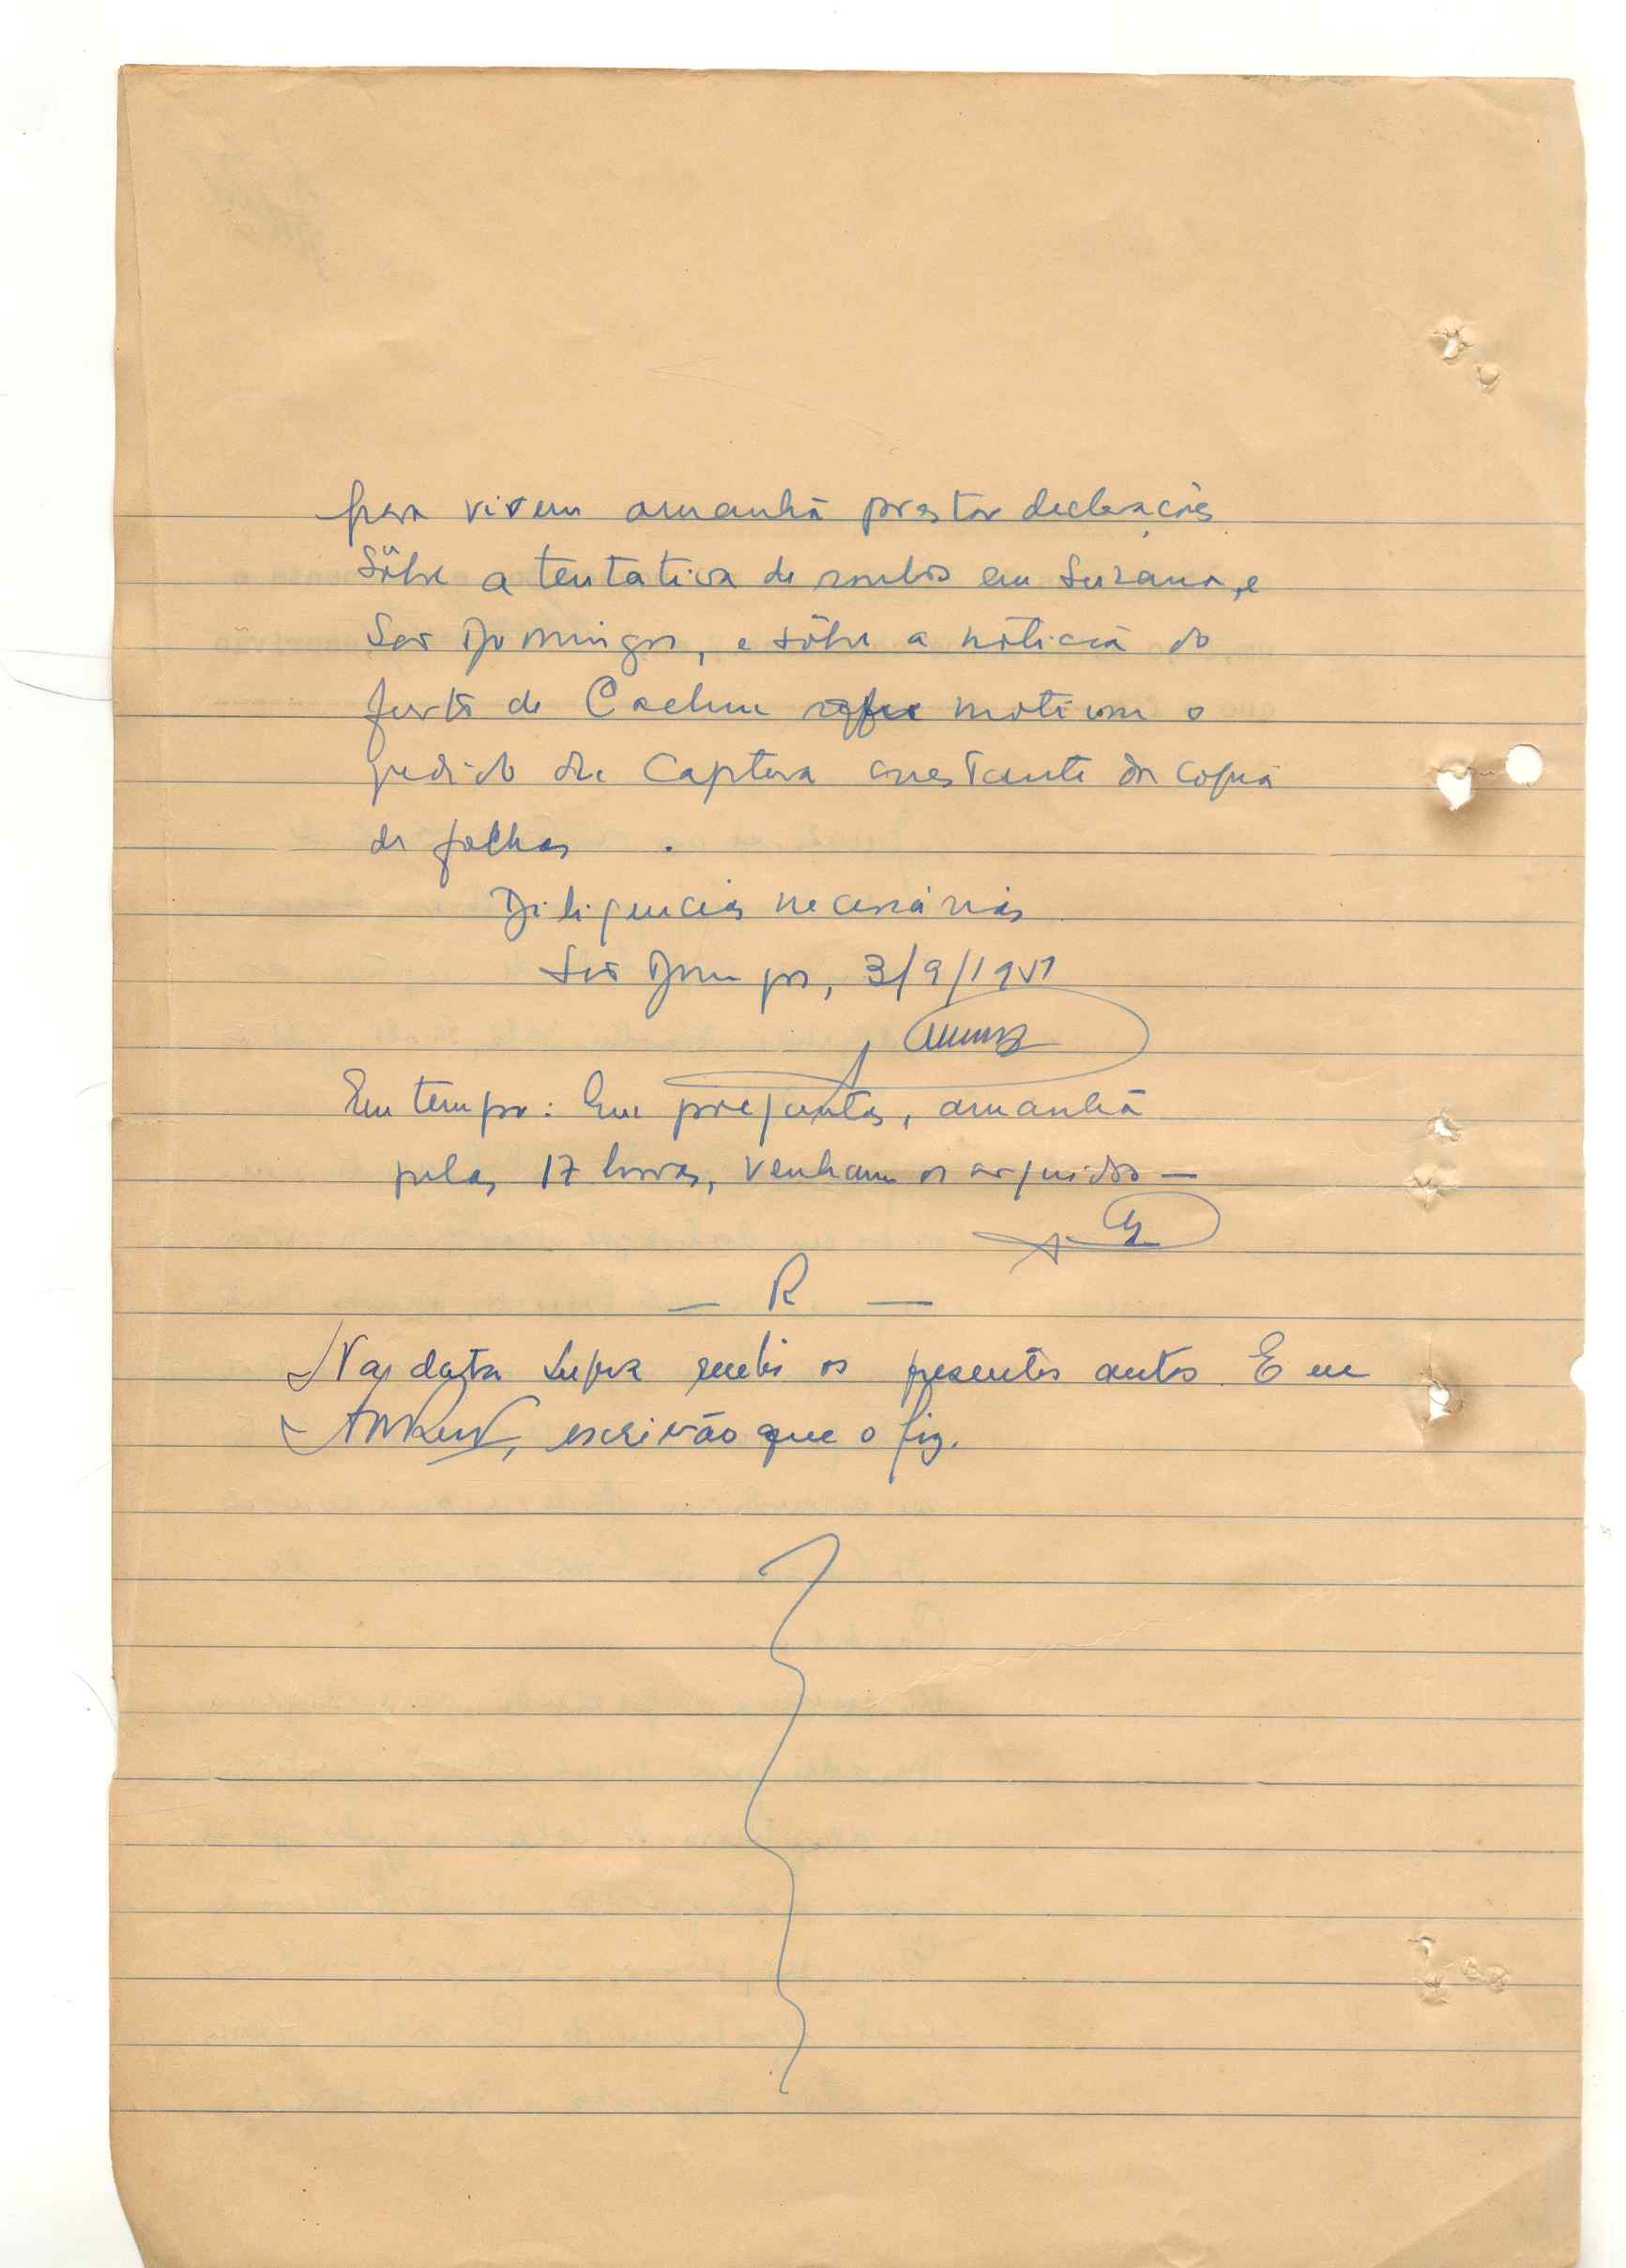 para virem amanhã prestar declarações
Sôbre a tentativa de roubo em Suzana, e
São Domingos, e sôbre a notícia do
furto de Cacheu que motivou o
pedido de Captura constante da copia
de folhas .
Diligencias necessárias
São Domingos, 3/9/1951
Em tempo: Em perguntas, amanhã
pelas 17 horas, venham os arguidos —
— R —
Na data supra recebi os presentes autos. E eu
escrivão que o fiz.